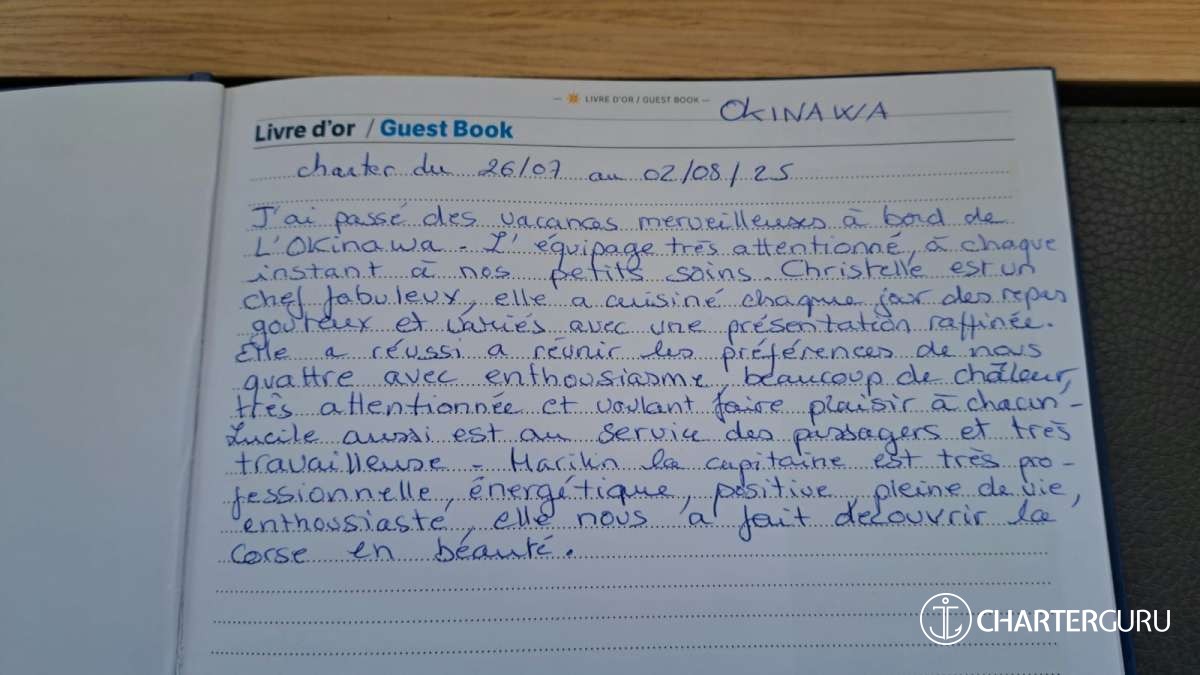 — LIVRE D'OR / GUEST BOOK —
OKINAWA
Livre d'or / Guest Book
charter du 26/07 au 02/08/25
J'ai passé des vacances merveilleuses à bord de
L'Okinawa - L'équipage très attentionné, à chaque
instant à nos petits soins. Christelle est un
chef fabuleux, elle a cuisiné chaque jour des repas
gouteux et variés avec une présentation raffinée.
Elle a réussi a réunir les préférences de nous
quattre avec enthousiasme, beaucoup de chaleur,
très attentionnée et voulant faire plaisir à chacun -
Lucile aussi est au service des passagers et très
travailleuse - Marilin la capitaine est très pro-
fessionnelle, énergétique, positive, pleine de vie,
enthousiaste, elle nous a fait découvrir la
Corse en béauté.
CHARTERGURU